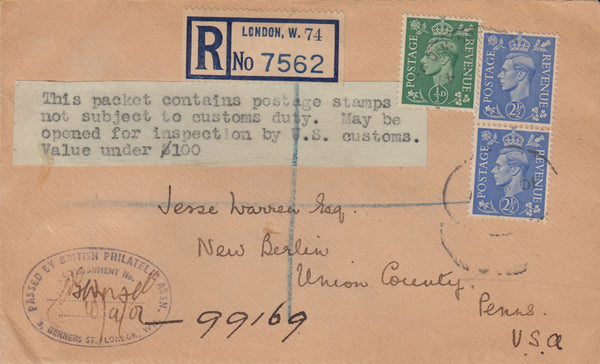 LONDON, W. 74
R No 7562
POSTAGE REVENUE ½D
POSTAGE REVENUE 2½D
POSTAGE REVENUE 2½D
This packet contains postage stamps
not subject to customs duty. May be
opened for inspection by U.S. customs.
Value under $100
Jesse Warren Esq.
New Berlin
Union County.
Penns.
USA
PASSED BY BRITISH PHILATELIC ASSN.
No.
3, BERNERS ST., LONDON, W.
99169